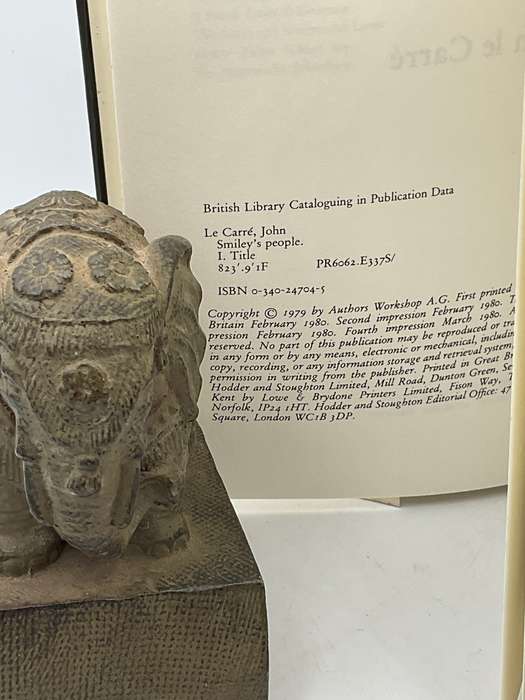 British Library Cataloguing in Publication Data
Le Carré, John
Smiley's people.
I. Title
823'.9'1F PR6062.E337S/
ISBN 0-340-24704-5
Copyright © 1979 by Authors Workshop A.G. First printed
Britain February 1980. Second impression February 1980.
pression February 1980. Fourth impression March 1980.
reserved. No part of this publication may be reproduced or
in any form or by any means, electronic or mechanical,
copy, recording, or any information storage and retrieval system,
permission in writing from the publisher. Printed in Great
Hodder and Stoughton Limited, Mill Road, Dunton Green,
Kent by Lowe & Brydone Printers Limited, Fison Way,
Norfolk, IP24 1HT. Hodder and Stoughton Editorial Office: 47
Square, London WC1B 3DP.